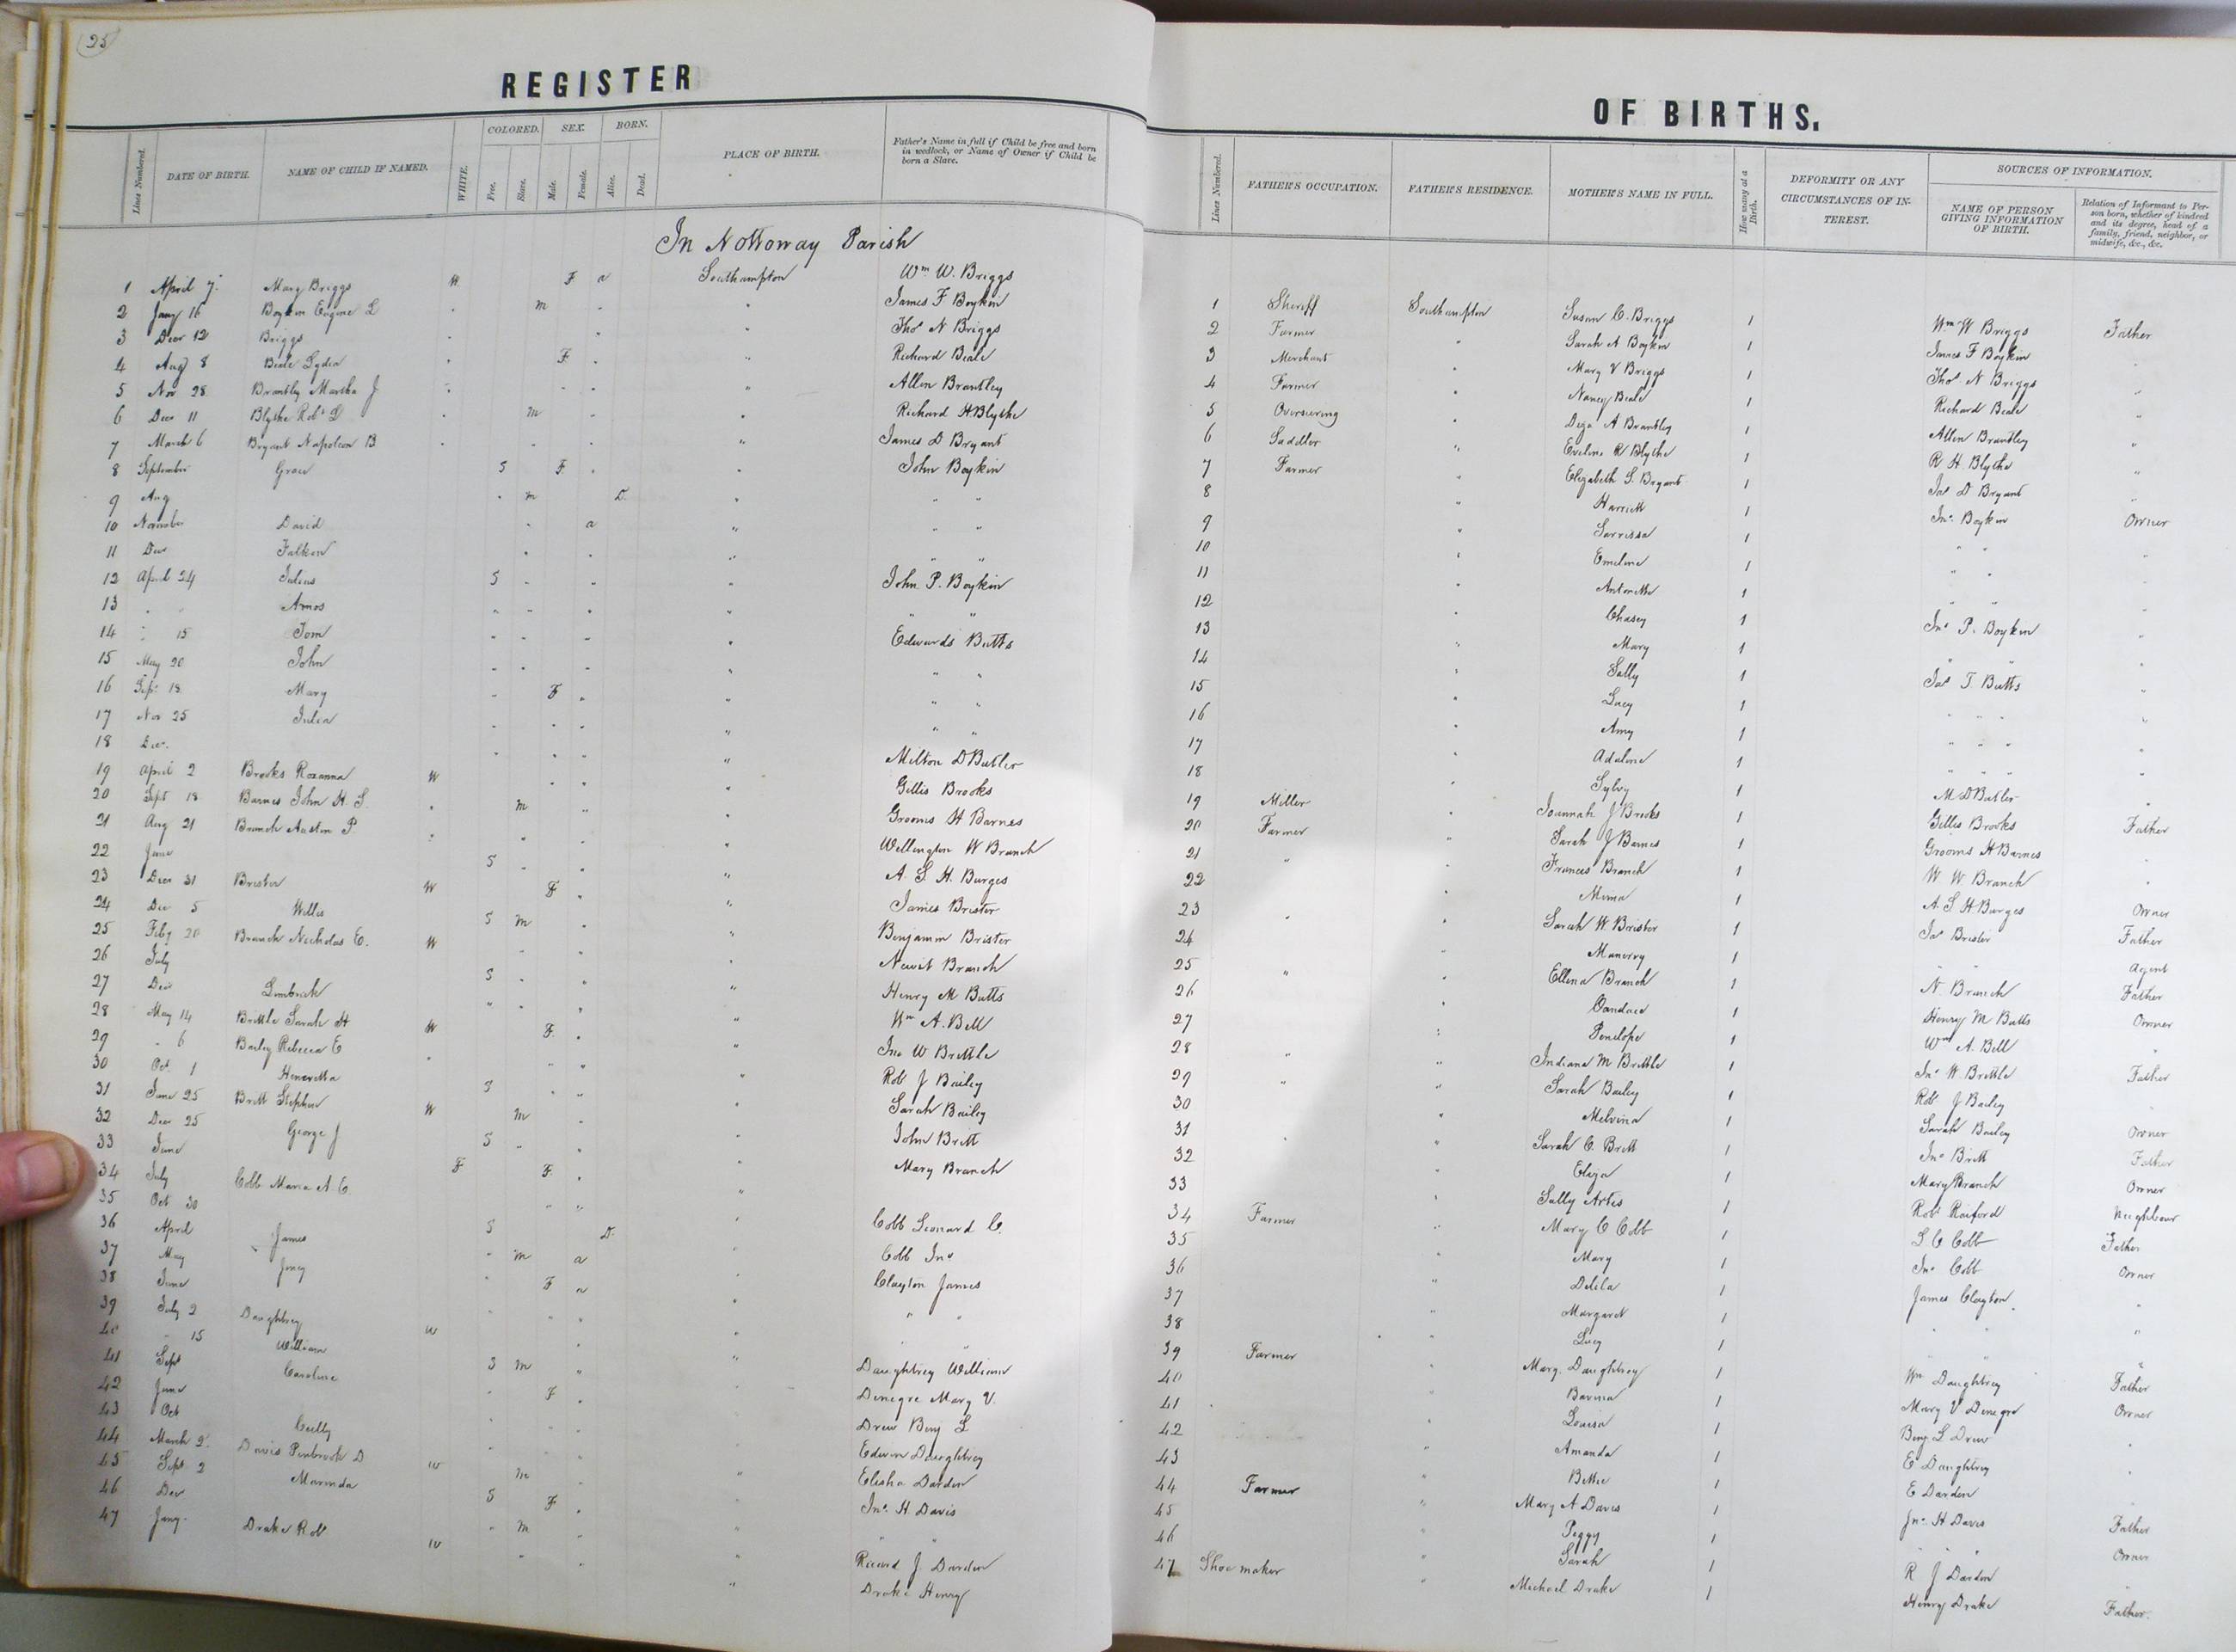 25
REGISTER
Lines Numbered. DATE OF BIRTH. NAME OF CHILD IF NAMED. WHITE. COLORED. Free. Slave. SEX. Male. Female. BORN. Alive. Dead. PLACE OF BIRTH. Father's Name in full if Child be free and born in wedlock, or Name of Owner if Child be born a Slave.
In Nottoway Parish
1 April 7 Mary Briggs W. F a Southampton Wm W. Briggs
2 Jany 16 Boykin Eugene L " m " " James F Boykin
3 Decr 12 Briggs " " " Thos N Briggs
4 Aug 8 Beale Lydia " F " " Richard Beale
5 Nov 28 Brantley Martha J " " " " Allen Brantley
6 Decr 11 Blythe Robt D " m " " Richard H Blythe
7 March 6 Bryant Napoleon B " " " " James D Bryant
8 September S F " " John Boykin
9 Aug " m D. " " "
10 November David " a " " "
11 Decr " " " " "
12 April 24 S " " " John P. Boykin
13 " " Amos " " " " " "
14 " 15 Tom " " " " Edwards Butts
15 May 20 John " " " " " "
16 Sept 18 Mary " F " " " "
17 Nov 25 Julia " " " " " "
18 Decr. " " " " Milton D Butler
19 April 2 Brooks Roxanna W " " " Gillis Brooks
20 Sept 18 Barnes John H. S. " m " " Grooms H Barnes
21 Aug 21 Branch Austin P " " " " Wellington W Branch
22 June S " " " A. S. H. Burges
23 Decr 31 Brister W F " " James Brister
24 Dec 5 Willis S m " " Benjamin Brister
25 Feby 20 Branch Nicholas E. W " " " Newit Branch
26 July S " " " Henry M Butts
27 Decr " " " " Wm A. Bell
28 May 14 Brittle Sarah H W F. " " Jno W Brittle
29 " 6 Bailey Rebecca E " " " " Rob J Bailey
30 Oct. 1 Henrietta S " " " Sarah Bailey
31 June 25 Britt Stephen W m " " John Britt
32 Decr 25 George J S " " " Mary Branch
33 June F F "
34 July Cobb Maria A. E. " " " Cobb Leonard C.
35 Oct 30 S D. " Cobb Jno
36 April James " m a " Clayton James
37 May " F a " " "
38 June " " " " " "
39 July 2 Daughtrey W " Daughtrey William
40 " 15 William S m " " Denegre Mary V.
41 Sept Caroline " F " Drew Benj L
42 June " " Edwin Daughtrey
43 Oct " " " Elisha Darden
44 March 2 Davis Penbrook D w m " Jno. H Davis
45 Sept 2 S F " " "
46 Dec " m " "
47 Jany. Drake Rob w " " " Drake Henry
OF BIRTHS.
Lines Numbered. FATHER'S OCCUPATION. FATHER'S RESIDENCE. MOTHER'S NAME IN FULL. How many at a Birth. DEFORMITY OR ANY CIRCUMSTANCES OF INTEREST. SOURCES OF INFORMATION. NAME OF PERSON GIVING INFORMATION OF BIRTH. Relation of Informant to Person born, whether of kindred and its degree, head of a family, friend, neighbor, or midwife, &c., &c.
1 Sheriff Southampton Susan C. Briggs 1 Wm W Briggs Father
2 Farmer " Sarah A Boykin 1 James F Boykin "
3 Merchant " Mary V Briggs 1 Thos N Briggs "
4 Farmer " Nancy Beale 1 Richard Beale "
5 Overseering " A Brantley 1 Allen Brantley "
6 Saddler " Eveline R Blythe 1 R H. Blythe "
7 Farmer " Elizabeth S. Bryant 1 Jas D Bryant "
8 " Harriett 1 Jno. Boykin Owner
9 " 1 " " "
10 " Emeline 1 " "
11 " 1 " "
12 " Chasey 1 Jno P. Boykin "
13 " Mary 1 " "
14 " Sally 1 Jas T Butts "
15 " Lucy 1 " " "
16 " Amy 1 " " "
17 " Adaline 1 " " "
18 " Sylvy 1 M D Butler "
19 Miller " Joannah J Brooks 1 Gillis Brooks Father
20 Farmer " Sarah J Barnes 1 Grooms H Barnes "
21 " " Frances Branch 1 W W Branch "
22 " Mima 1 A. S H Burges Owner
23 " " Sarah W. Brister 1 Jas Brister Father
24 " 1 " " Agent
25 " " Ellena Branch 1 N. Branch Father
26 " Candace 1 Henry M Butts Owner
27 " Penelope 1 Wm A. Bell "
28 " " Indiana M Brittle 1 Jno. W. Brittle Father
29 " " Sarah Bailey 1 Rob J Bailey
30 " Melvina 1 Sarah Bailey Owner
31 " " Sarah C. Britt 1 Jno Britt Father
32 " Eliza 1 Mary Branch Owner
33 " Sally Artis 1 Rob Raiford Neighbour
34 Farmer " Mary C Cobb 1 L C Cobb Father
35 " Mary 1 Jno. Cobb Owner
36 " Delila 1 James Clayton "
37 " Margaret 1 " "
38 " Lucy 1 " "
39 Farmer " Mary. Daughtrey 1 Wm Daughtrey Father
40 " 1 Mary V Denegre Owner
41 " Louisa 1 Benj L Drew "
42 " Amanda 1 E Daughtrey "
43 " 1 E Darden
44 Farmer " Mary A Davis 1 Jno. H Davis Father
45 " Peggy 1 " " Owner
46 " Sarah 1 R J Darden
47 Shoe maker " Michael Drake 1 Henry Drake Father.